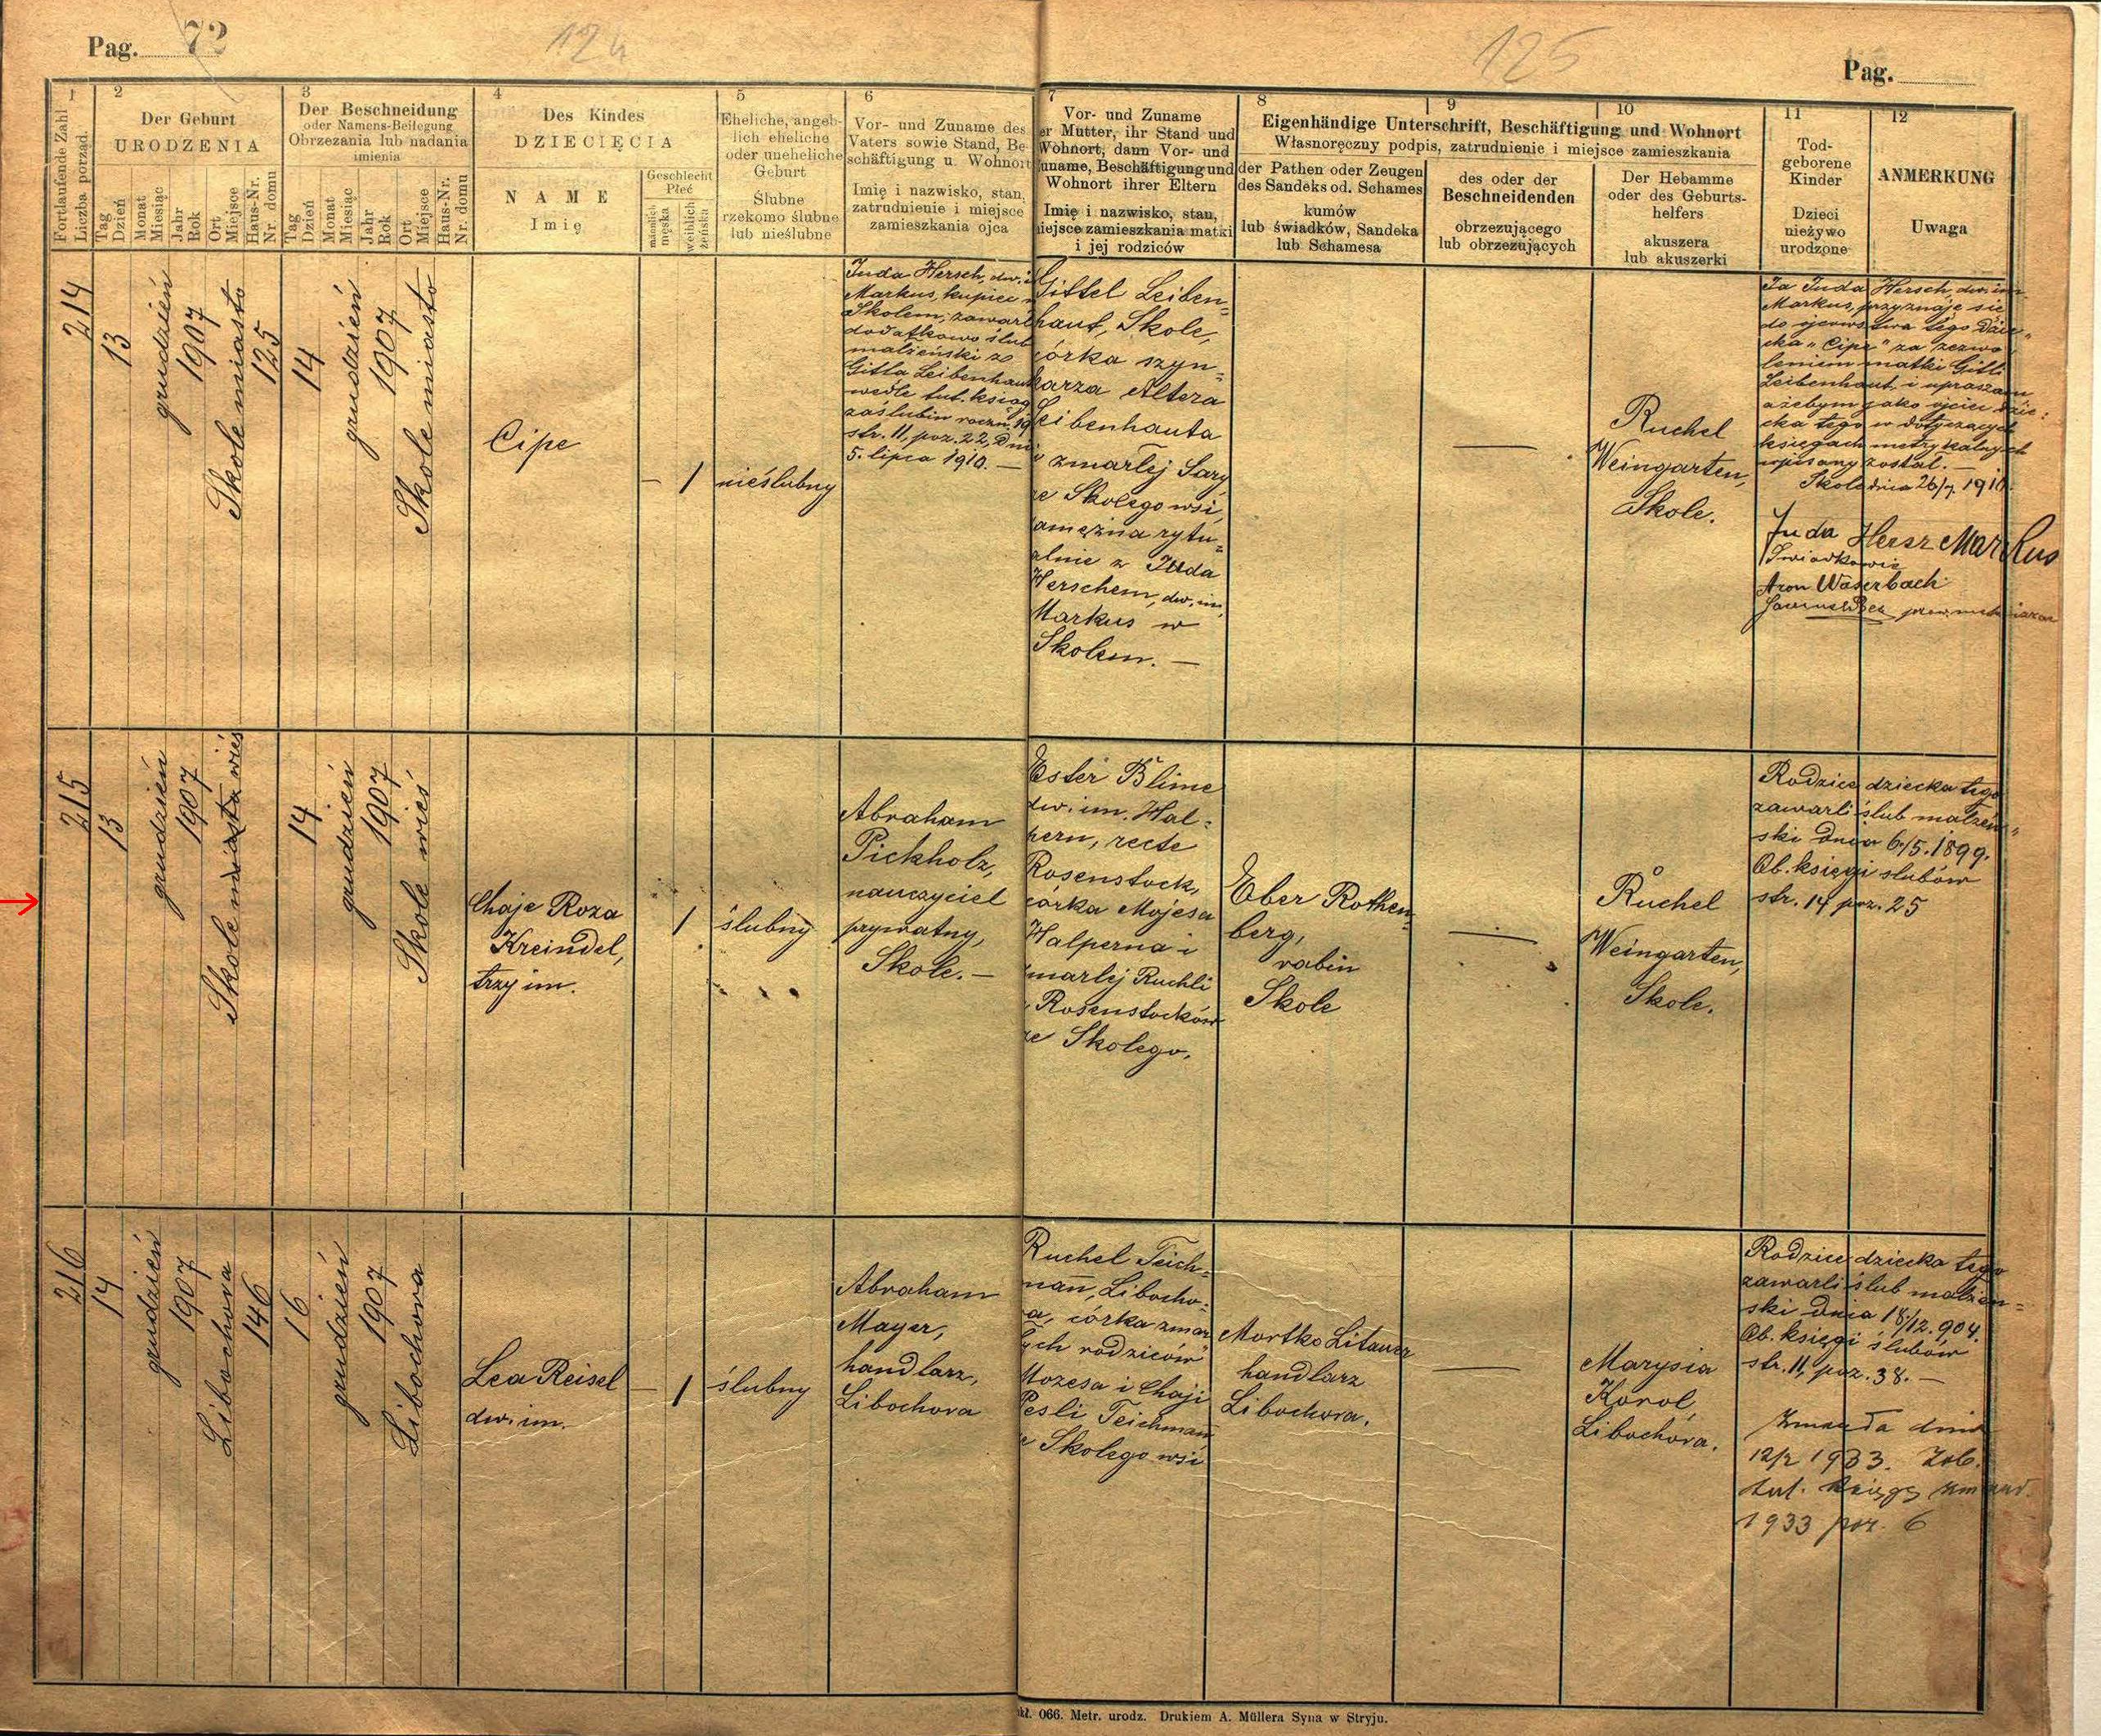 Pag. 72
124
125
Pag.
1
2
3
4
5
6
7
8
9
10
11
12
Fortlaufende Zahl
Liczba porząd.
Der Geburt
URODZENIA
Tag
Dzień
Monat
Miesiąc
Jahr
Rok
Ort
Miejsce
Haus-Nr.
Nr. domu
Der Beschneidung
oder Namens-Beilegung
Obrzezania lub nadania
imienia
Tag
Dzień
Monat
Miesiąc
Jahr
Rok
Ort
Miejsce
Haus-Nr.
Nr. domu
Des Kindes
DZIECIĘCIA
NAME
Imię
Geschlecht
Płeć
männlich
męska
weiblich
żeńska
Eheliche, angeb-
lich eheliche
oder uneheliche
Geburt
Ślubne
rzekomo ślubne
lub nieślubne
Vor- und Zuname des
Vaters sowie Stand, Be
schäftigung u. Wohnort
Imię i nazwisko, stan,
zatrudnienie i miejsce
zamieszkania ojca
Vor- und Zuname
er Mutter, ihr Stand und
Wohnort, dann Vor- und
uname, Beschäftigung und
Wohnort ihrer Eltern
Imię i nazwisko, stan,
iejsce zamieszkania matki
i jej rodziców
Eigenhändige Unterschrift, Beschäftigung und Wohnort
Własnoręczny podpis, zatrudnienie i miejsce zamieszkania
der Pathen oder Zeugen
des Sandeks od. Schames
kumów
lub świadków, Sandeka
lub Schamesa
des oder der
Beschneidenden
obrzezującego
lub obrzezujących
Der Hebamme
oder des Geburts-
helfers
akuszera
lub akuszerki
Tod-
geborene
Kinder
Dzieci
nieżywo
urodzone
ANMERKUNG
Uwaga
214
13
grudzień
1907
Skole miasto
125
14
grudzień
1907
Skole miasto
Cipe
— 1
nieślubny
Juda Hersch, dw. i
Markus, kupiec w
Skolem, zawarł
dodatkowo ślub
małżeński z
Gitlą Leibenhaut
wedle tut. ksiąg
zaślubin roczn. 19
str. 11, poz. 22, Dnia
5. lipca 1910. —
Gittel Leiben=
haut, Skole,
córka szyn=
karza Altera
Leibenhauta
i zmarłej Sary
ze Skolego wsi,
zamężna rytu=
alnie z Juda
Herschem, dw. im.
Markus w
Skolem. —
—
Ruchel
Weingarten,
Skole.
Ja Juda Hersch, dw. im.
Markus, przyznaję się
do ojcowstwa tego Dzie=
cka „Cipe" za zezwo=
leniem matki Gitli
Leibenhaut, i upraszam
ażebym jako ojciec dzie=
cka tego w dotyczących
księgach metrykalnych
wpisany został. —
Skole dnia 26/7. 1910.
Juda Hersz Markus
Świadkowie
Aron Waserbach
215
13
grudzień
1907
Skole miasto wieś
14
grudzień
1907
Skole wieś
Chaje Roza
Kreindel,
trzy im.
1
ślubny
Abraham
Pickholz,
nauczyciel
prywatny,
Skole. —
Ester Blime
dw. im. Hal=
pern, recte
Rosenstock,
córka Mojesa
Halperna i
zmarłej Ruchli
z Rosenstocków
ze Skolego.
Eber Rothen=
berg,
rabin
Skole
—
Ruchel
Weingarten,
Skole.
Rodzice dziecka tego
zawarli ślub małżeń=
ski Dnia 6/5. 1899.
Ob. księgi ślubów
str. 14 poz. 25
216
14
grudzień
1907
Libochora
146
16
grudzień
1907
Libochora
Lea Reisel
dw. im.
— 1
ślubny
Abraham
Mayer,
handlarz,
Libochora
Ruchel Teich=
mann, Libocho=
ra, córka zmar
łych rodziców
Mozesa i Chaji
Pesli Teichman
ze Skolego wsi
Mortko Litauer
handlarz
Libochora.
—
Marysia
Korol,
Libochora.
Rodzice dziecka tego
zawarli ślub małżeń=
ski dnia 18/12. 904.
Ob. księgi ślubów
str. 11, poz. 38. —
Zmarła dnia
12/2 1933. Zob.
tut. księgę zmarł.
1933 poz. 6
kł. 066. Metr. urodz. Drukiem A. Müllera Syna w Stryju.